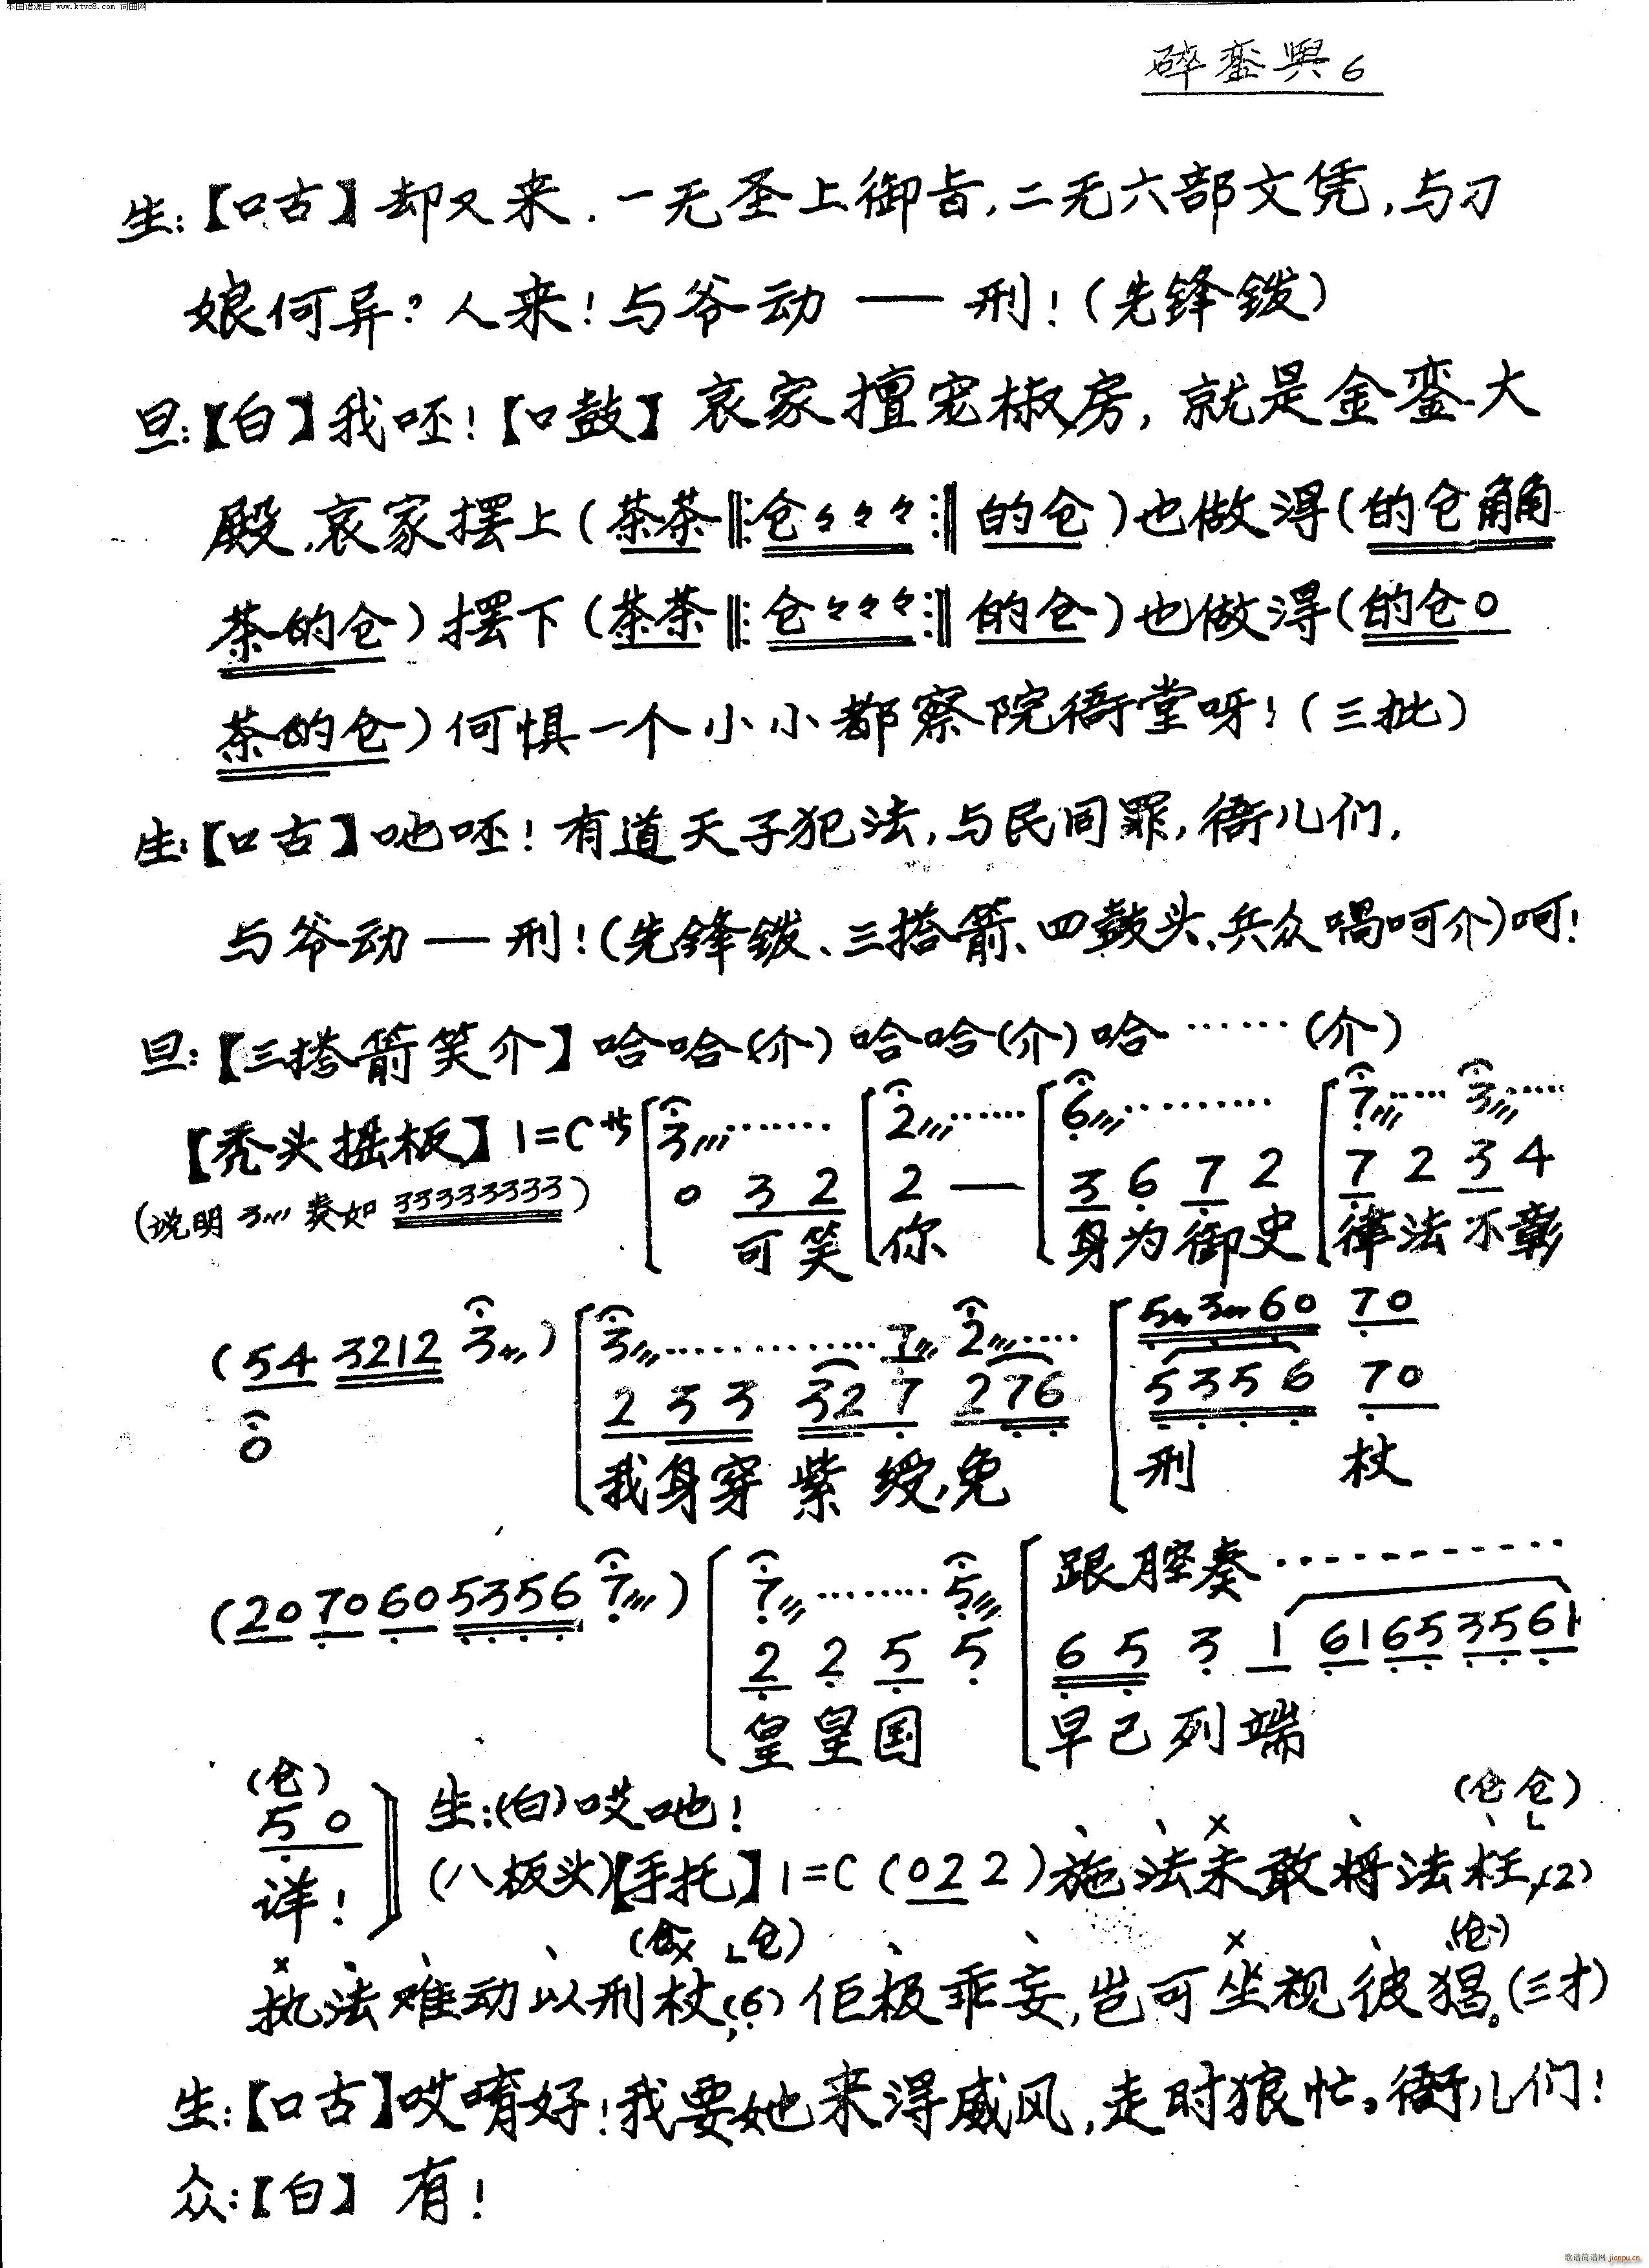 本曲谱源自 www.ktvc8.com 词曲网
碎銮舆6
生:【口古】却又来.一无圣上御旨,二无六部文凭,与刁
娘何异?人来!与爷动——刑!(先锋钹)
旦:【白】我呸!【口鼓】哀家擅宠椒房,就是金銮大
殿,哀家摆上(茶茶‖:仓々々々:‖的仓)也做得(的仓角角
茶的仓)摆下(茶茶‖:仓々々々:‖的仓)也做得(的仓0
茶的仓)何惧一个小小都察院衙堂呀!(三批)
生:【口古】吔呸!有道天子犯法,与民同罪,衙儿们,
与爷动——刑!(先锋钹、三搭箭、四鼓头、兵众喝呵介)呵!
旦:【三搭箭笑介】哈哈(介)哈哈(介)哈……(介)
【秃头搖板】1=C サ 3〃……… 2〃……… 6〃……… 7〃…… 3〃……
(说明 3〃 奏如 33333333) 0 3 2 2 — 3 6 7 2 7 2 3 4
可笑 你 身为御史 律法不彰
(54 3212 3〃) 3〃……………7〃 2〃…… 5〃3〃60 70
0 2 3 3 32 7 276 5356 70
我身穿紫绶,免 刑 杖
(20 70 60 5356 7〃) 7〃……… 5〃 跟腔奏…………
2 2 5 5 6 5 3 1 61 65 35 61
皇皇国 早已列端
(仓)
5 0 生:(白)哎吔!
(仓仓)
详! (八板头)【手托】1=C (022)施法未敢将法枉,(2)
(仓 仓) (仓)
执法难动以刑杖,(6)佢极乖妄,岂可坐视彼猖。(三才)
生:【口古】哎唷好!我要她来得威风,走时狼忙。衙儿们!
众:【白】有!
歌谱简谱网 jianpu.cn